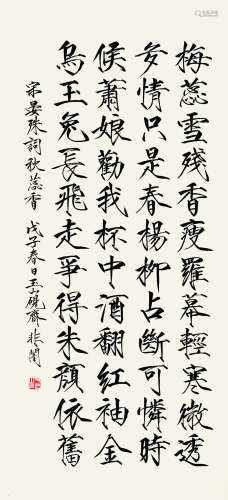 梅蕊雪殘香瘦羅幕輕寒微透
多情只是春楊柳占斷可憐時
候蕭娘勸我杯中酒翻紅袖金
烏玉兔長飛走爭得朱顏依舊
宋晏殊詞秋蕊香 戊子春日玉山硯齋 非闇